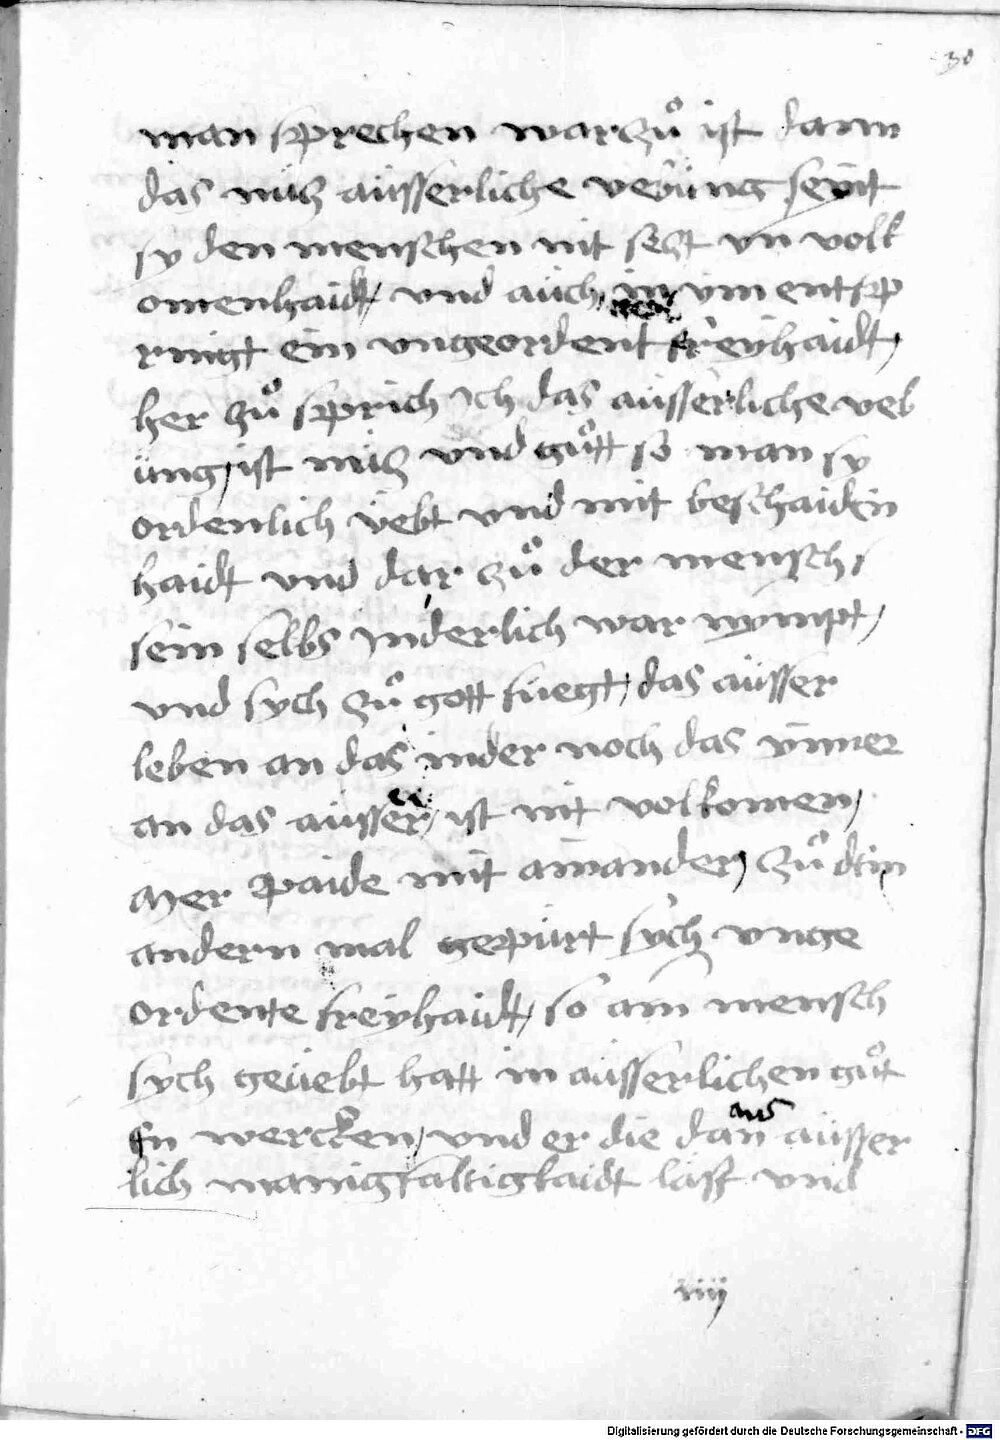 30
man sprechen warzuͦ ist dann
das nütz aüsserliche vebüng seyit
sy den menschen nit setzt vn volk
omenhaidt, vnd aüch, in ym entsp
ringt ein vngeordent freyhaidt,
her zuͦ sprich Ich das aüsserliche veb
üng, ist nütz vnd guͦtt so man sy
ordenlich yebt vnd mit beschaiden
haidt vnd dar zuͦ der mensch,
sein selbs Inderlich war nympt,
vnd sych zuͦ gott fuegt, das aüsser
leben an das inder noch das ynner
an das aüsser, ist nit volkomen,
Mer paide mit ainander, zuͦ dem
andern mal gepürt sych vnge
ordente freyhaidt, so ain mensch
sych geüebt hatt in aüsserlichen guͦt
en wercken, vnd er die dan aus aüsser
lich manigfaltigkaidt läst vnd
iiij
Digitalisierung gefördert durch die Deutsche Forschungsgemeinschaft - DFG